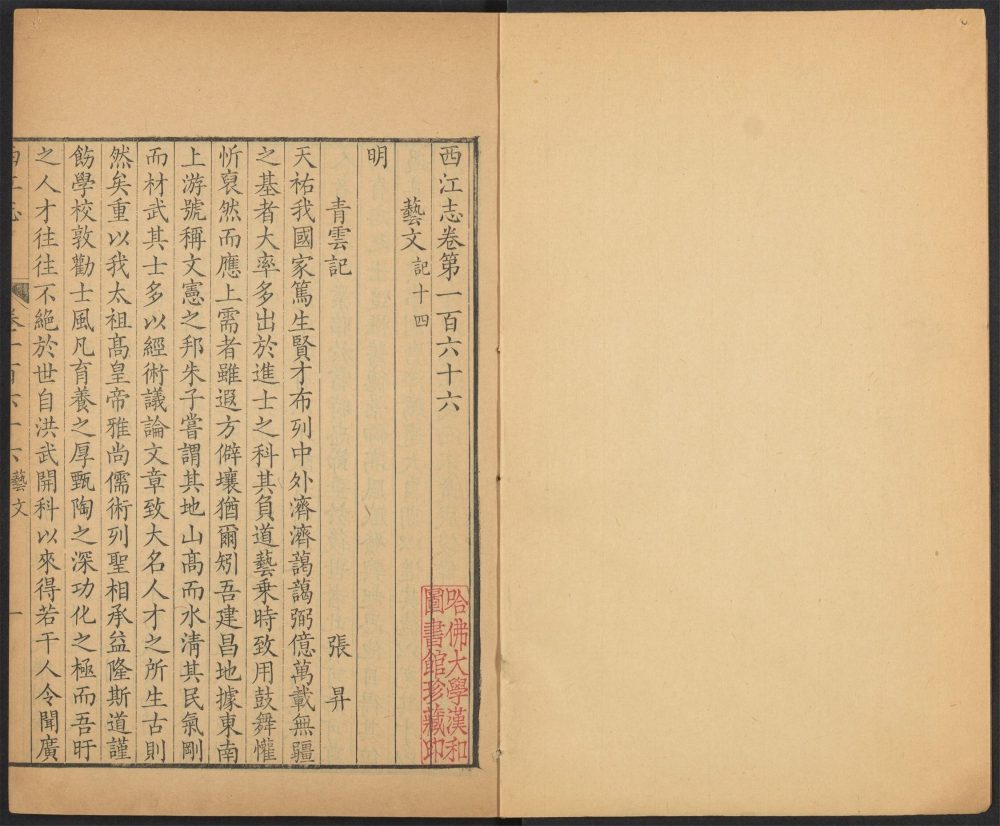 西江志卷第一百六十六
藝文 記十四
明
青雲記 張昇
天祐我國家篤生賢才布列中外濟濟藹藹弼億萬載無疆
之基者大率多出於進士之科其負道藝乘時致用鼓舞懽
忻裒然而應上需者雖遐方僻壤猶爾矧吾建昌地據東南
上游號稱文憲之邦朱子嘗謂其地山高而水清其民氣剛
而材武其士多以經術議論文章致大名人才之所生古則
然矣重以我太祖高皇帝雅尚儒術列聖相承益隆斯道謹
飭學校敦勸士風凡育養之厚甄陶之深功化之極而吾旴
之人才往往不絕於世自洪武開科以來得若干人令聞廣
西江志 卷一百六十六 藝文 一
哈佛大學漢和
圖書館珍藏印